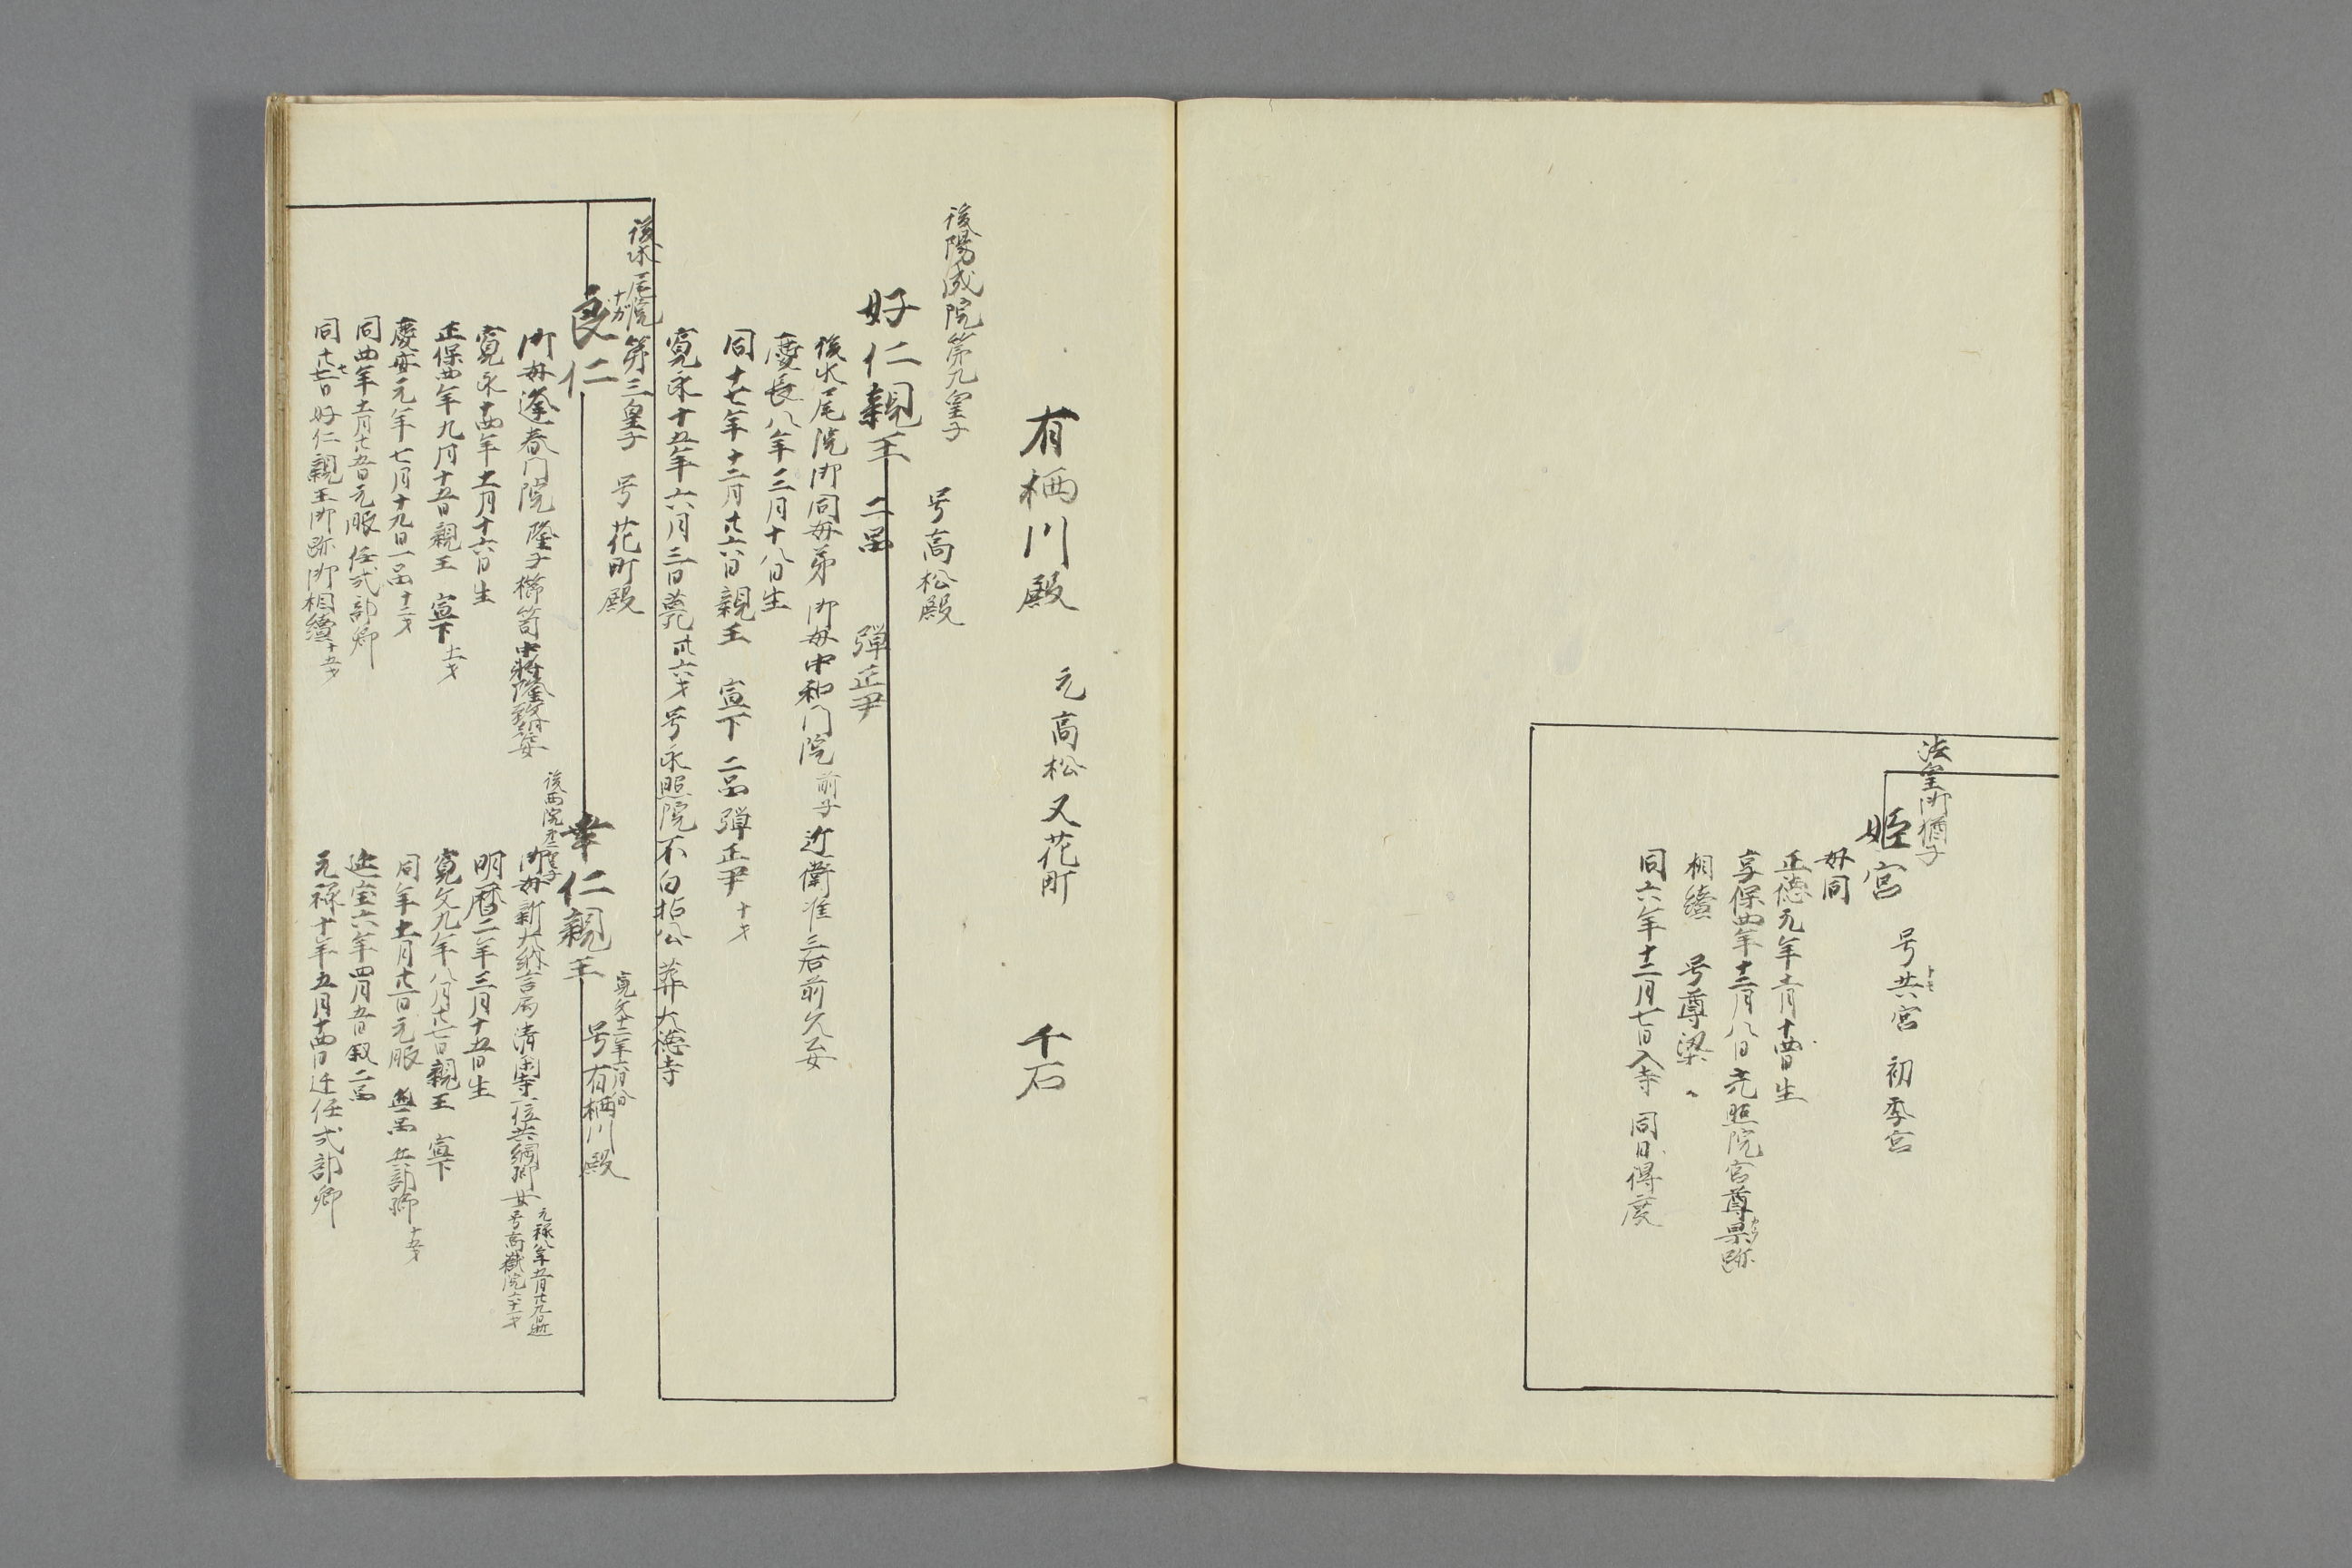 法皇御猶子
姫宮 号共宮 初季宮
トモ
母同
正徳元年十一月十四日生
享保四年十二月八日光照院宮尊杲跡
相続 号尊梁
同六年十二月七日入寺 同日得度
有栖川殿 元高松 又花町 千石
後陽成院第九皇子 号高松殿
好仁親王 二品 弾正尹
後水尾院御同母弟 御母中和門院 前子 近衛准三后前久公女
慶長八年三月十八日生
同十七年十二月廿六日親王 宣下 二品弾正尹 十才
寛永十五年六月三日薨 卅六才 号永照院不白拈公 葬大徳寺
後水尾院第三皇子 号花町殿
良仁
ナガ
御母逢春門院 隆子 櫛笥中将隆致女
寛永十四年十一月十六日生
正保四年九月十五日親王 宣下 十一才
慶安元年七月十九日一品 十二才
同四年十一月廿五日元服 任式部卿
同廿七日好仁親王御跡御相続 十五才
後西院第二皇子
幸仁親王 号有栖川殿
寛文十二年六月八日
御母新大納言局 清閑寺一位共綱卿女 号高嶽院 六十一才
元禄八年五月廿九日逝
明暦二年三月十五日生
寛文九年八月廿七日親王 宣下
同年十一月廿一日元服 三品 兵部卿 十五才
延宝六年四月五日叙二品
元禄十年五月十四日迁任式部卿